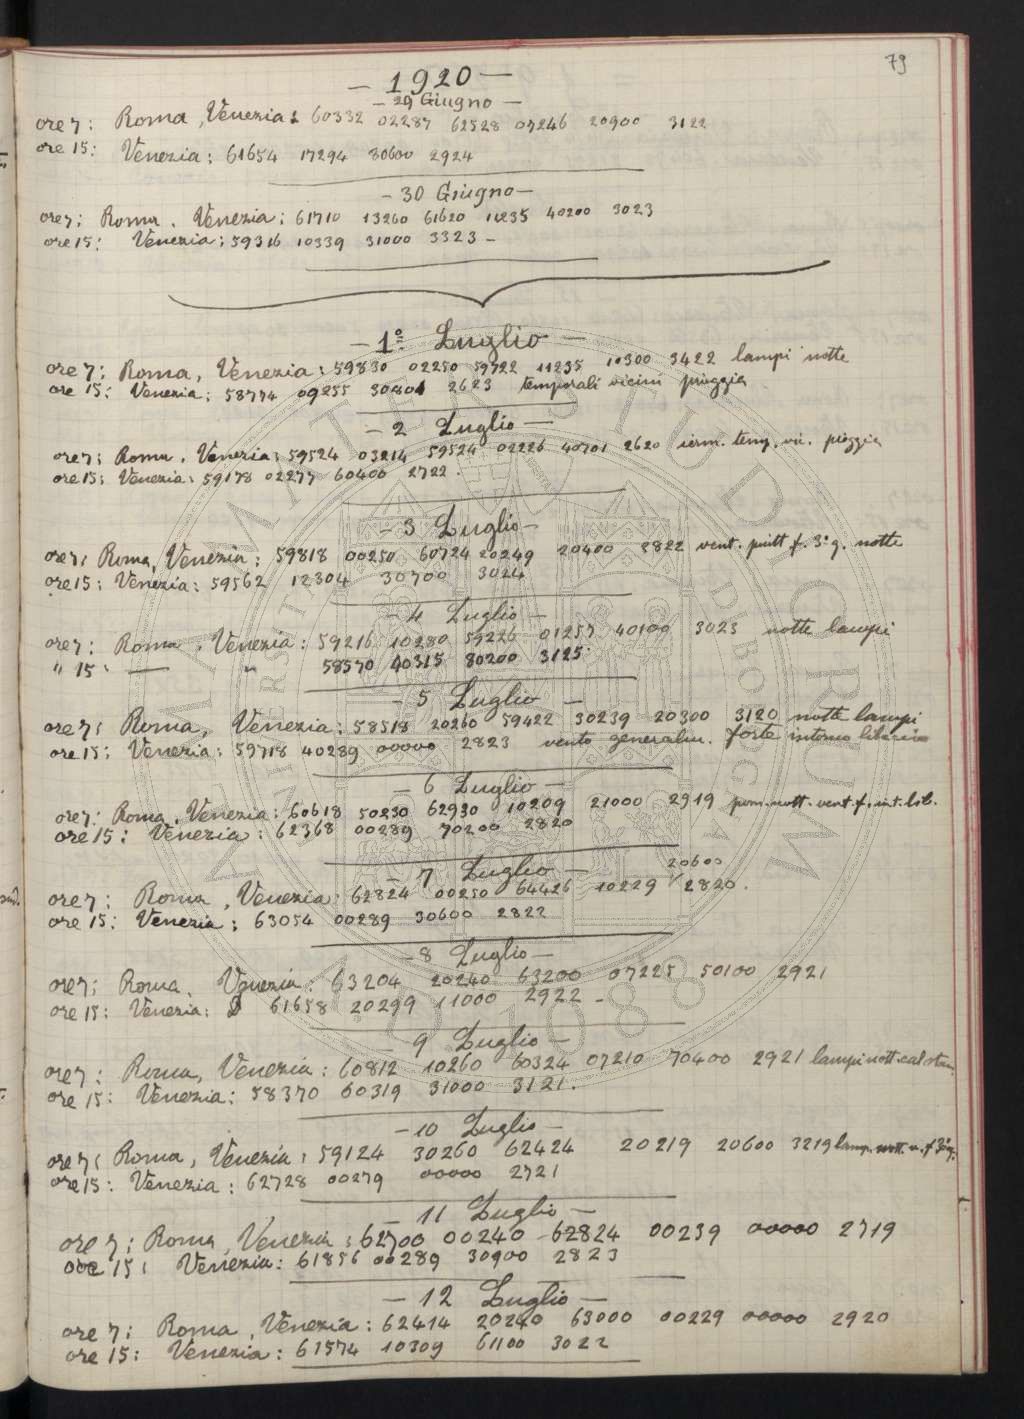 79
— 1920 —
— 29 Giugno —
ore 7: Roma, Venezia: 60332 02287 62528 07246 20900 3122
ore 15: Venezia: 61654 17294 80600 2924
— 30 Giugno —
ore 7: Roma, Venezia: 61710 13260 61620 11235 40200 3023
ore 15: Venezia: 59316 10339 31000 3323 —
— 1º Luglio —
ore 7: Roma, Venezia: 59830 02250 59722 11235 10300 3422 lampi notte
ore 15: Venezia: 58774 09255 30801 2623 temporali vicini pioggia
— 2 Luglio —
ore 7: Roma, Venezia: 59524 03214 59524 02226 40701 2620 temp. vic. pioggia
ore 15: Venezia: 59178 02277 60400 2722.
— 3 Luglio —
ore 7: Roma, Venezia: 59818 00250 60724 20249 20400 2822 vent. f. 3º g. notte
ore 15: Venezia: 59562 12304 30700 3024
— 4 Luglio —
ore 7: Roma, Venezia: 59216 10280 59226 01257 40100 3023 notte lampi
" 15 : — " 58570 40315 80200 3125
— 5 Luglio —
ore 7: Roma, Venezia: 58518 20260 59422 30239 20300 3120 notte lampi
ore 15: Venezia: 59718 40289 00000 2823 vento generalm. forte intorno
— 6 Luglio —
ore 7: Roma, Venezia: 60618 50230 62930 10209 21000 2919 pom. nott. vent. f. int. lib.
ore 15: Venezia: 62368 00289 70200 2820
— 7 Luglio —
20600
ore 7: Roma, Venezia: 62824 00250 64426 10229 2820.
ore 15: Venezia: 63054 00289 30600 2822
— 8 Luglio —
ore 7: Roma, Venezia: 63204 20240 63200 07225 50100 2921
ore 15: Venezia: 61658 20299 11000 2922 —
— 9 Luglio —
ore 7: Roma, Venezia: 60812 10260 60324 07210 70400 2921 lampi nott. cal.
ore 15: Venezia: 58370 60319 31000 3121.
— 10 Luglio —
ore 7: Roma, Venezia: 59124 30260 62424 20219 20600 3219 lamp. nott. v. f 3º g.
ore 15: Venezia: 62728 00279 00000 2721
— 11 Luglio —
ore 7: Roma, Venezia: 62700 00240 62824 00239 00000 2719
ore 15: Venezia: 61856 00289 30900 2823
— 12 Luglio —
ore 7: Roma, Venezia: 62414 20240 63000 00229 00000 2920
ore 15: Venezia: 61574 10309 61100 3022
ALMA MATER STUDIORUM
A.D. 1088